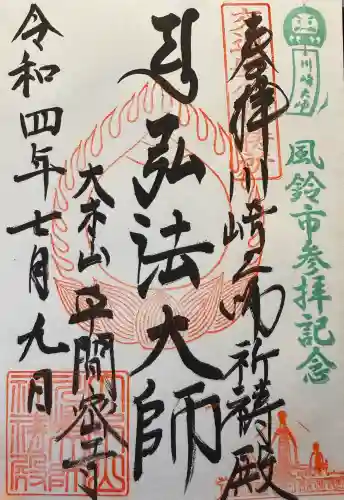 川崎大師
風鈴市参拝記念
奉拝 川崎大師 祈祷殿
弘法大師
大本山 平間密寺
令和四年七月九日